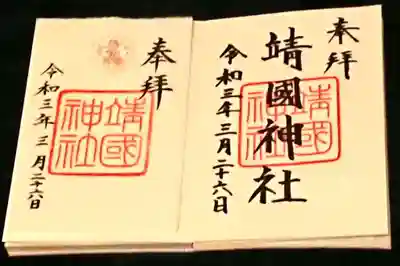 奉拝
靖國神社
令和三年三月二十六日
奉拝
靖國神社
靖國神社
令和三年三月二十六日